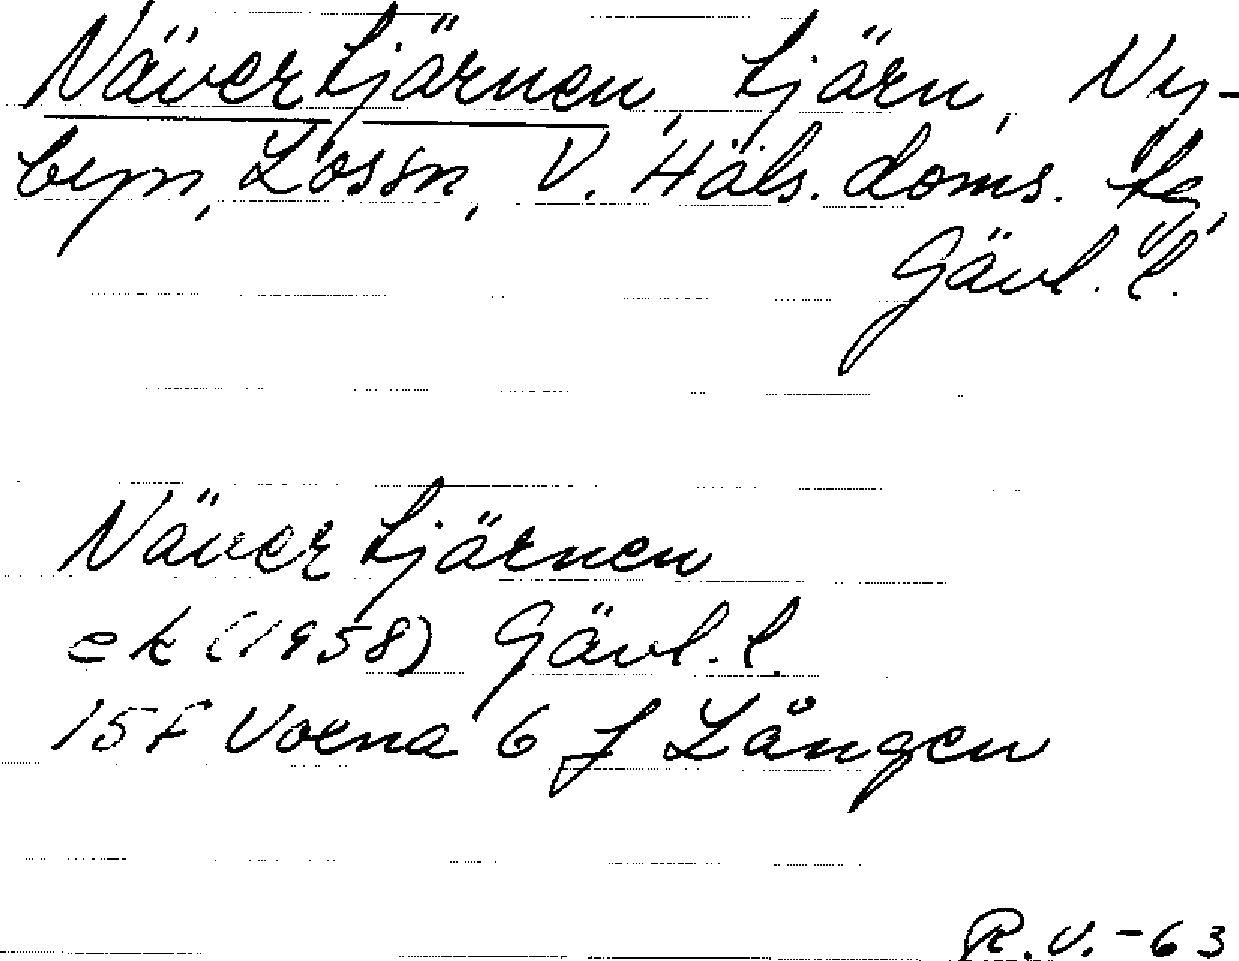 Nävertjärnen, tjärn, Ny-
byn, Lossn, V. Häls. doms.
Gävl. l.
Nävertjärnen
ek (1958) Gävl. l.
15F Voxna 6 f Lången
R.V.-63